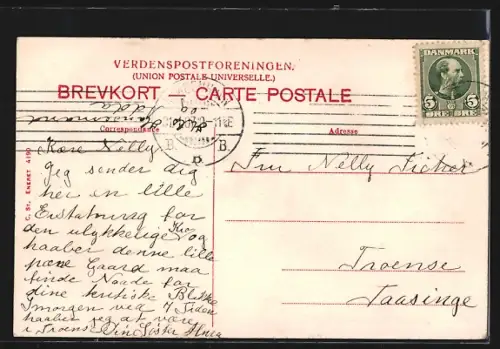 VERDENSPOSTFORENINGEN.
(UNION POSTALE UNIVERSELLE.)
BREVKORT – CARTE POSTALE
Correspondance
Adresse
DANMARK
5 5
ØRE ØRE
B. B.
C. St. ENERET 4190
Kære Nelly
Jeg sender dig
her en lille
Erstatning for
den ulykkelige Kro og
haaber denne lille
pæne Gaard maa
finde Naade for
dine kritiske Blikke
Imorgen ved 7 Tiden
haaber jeg at være
i Troense Din Søster
Nelly
Troense
Taasinge